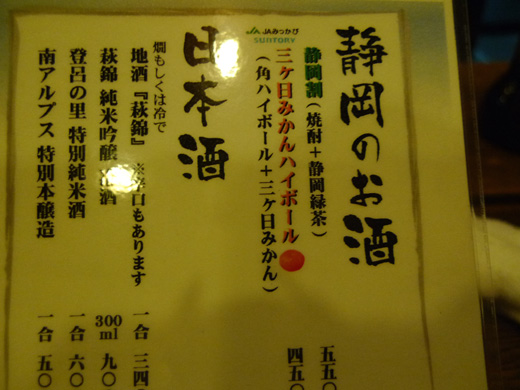 静岡のお酒
静岡割(焼酎+静岡緑茶)
五五〇
JA JAみっかび
SUNTORY
三ケ日みかんハイボール
(角ハイボール+三ケ日みかん)
四五〇
日本酒
燗もしくは冷で
地酒『萩錦』 ※辛口もあります
一合 三四
萩錦 純米吟醸 酒
300ml 九〇
登呂の里 特別純米酒
一合 六〇
南アルプス 特別本醸造
一合 五〇